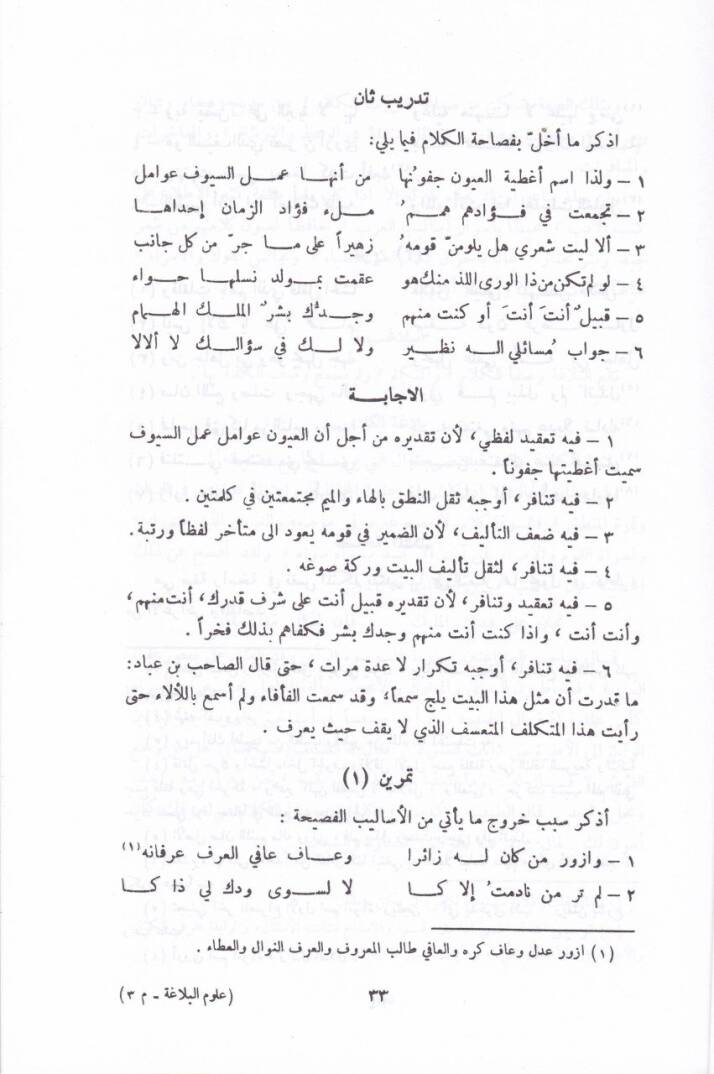 تدريب ثان
اذكر ما أخلّ بفصاحة الكلام فيما يلي:
١ – ولذا اسم أغطية العيون جفونُها من أنهـا عمـل السيوف عوامل
٢ – تجمعت في فـؤادهم هممٌ ملء فؤاد الزمان إحداهـا
٣ – ألا ليت شعري هل يلومنّ قومه زهيراً على مـا جرّ من كل جانب
٤ – لو لم تكن من ذا الورى اللذ منك هو عقمت بمـولد نسلهـا حـواء
٥ – قبيلٌ أنتَ أنتَ أو كنت منهم وجـدُّك بشرٌ الملـك الهـمام
٦ – جواب مُسائلي الـه نظـير ولا لـك في سؤالك لا ألالا
الاجابـة
١ – فيه تعقيد لفظي، لأن تقديره من أجل أن العيون عوامل عمل السيوف
سميت أغطيتها جفوناً .
٢ – فيه تنافر، أوجبه ثقل النطق بالهاء والميم مجتمعتين في كلمتين .
٣ – فيه ضعف التأليف، لأن الضمير في قومه يعود الى متأخر لفظاً ورتبة .
٤ – فيه تنافر، لثقل تأليف البيت وركة صوغه .
٥ – فيه تعقيد وتنافر، لأن تقديره قبيل أنت على شرف قدرك، أنت منهم،
وأنت أنت ، واذا كنت أنت منهم وجدك بشر فكفاهم بذلك فخراً .
٦ – فيه تنافر، أوجبه تكرار لا عدة مرات ، حتى قال الصاحب بن عباد:
ما قدرت أن مثل هذا البيت يلج سمعاً، وقد سمعت الفأفاء ولم أسمع باللألاء حتى
رأيت هذا المتكلف المتعسف الذي لا يقف حيث يعرف .
تمرين (١)
أذكر سبب خروج ما يأتي من الأساليب الفصيحة :
١ – وازور من كان لـه زائرا وعـاف عافي العرف عرفانه(١)
٢ – لم تر من نادمتُ إلا كـا لا لسوى ودك لي ذا كـا
(١) ازور عدل وعاف كره والعافي طالب المعروف والعرف النوال والعطاء .
٣٣ (علوم البلاغة - م ٣)